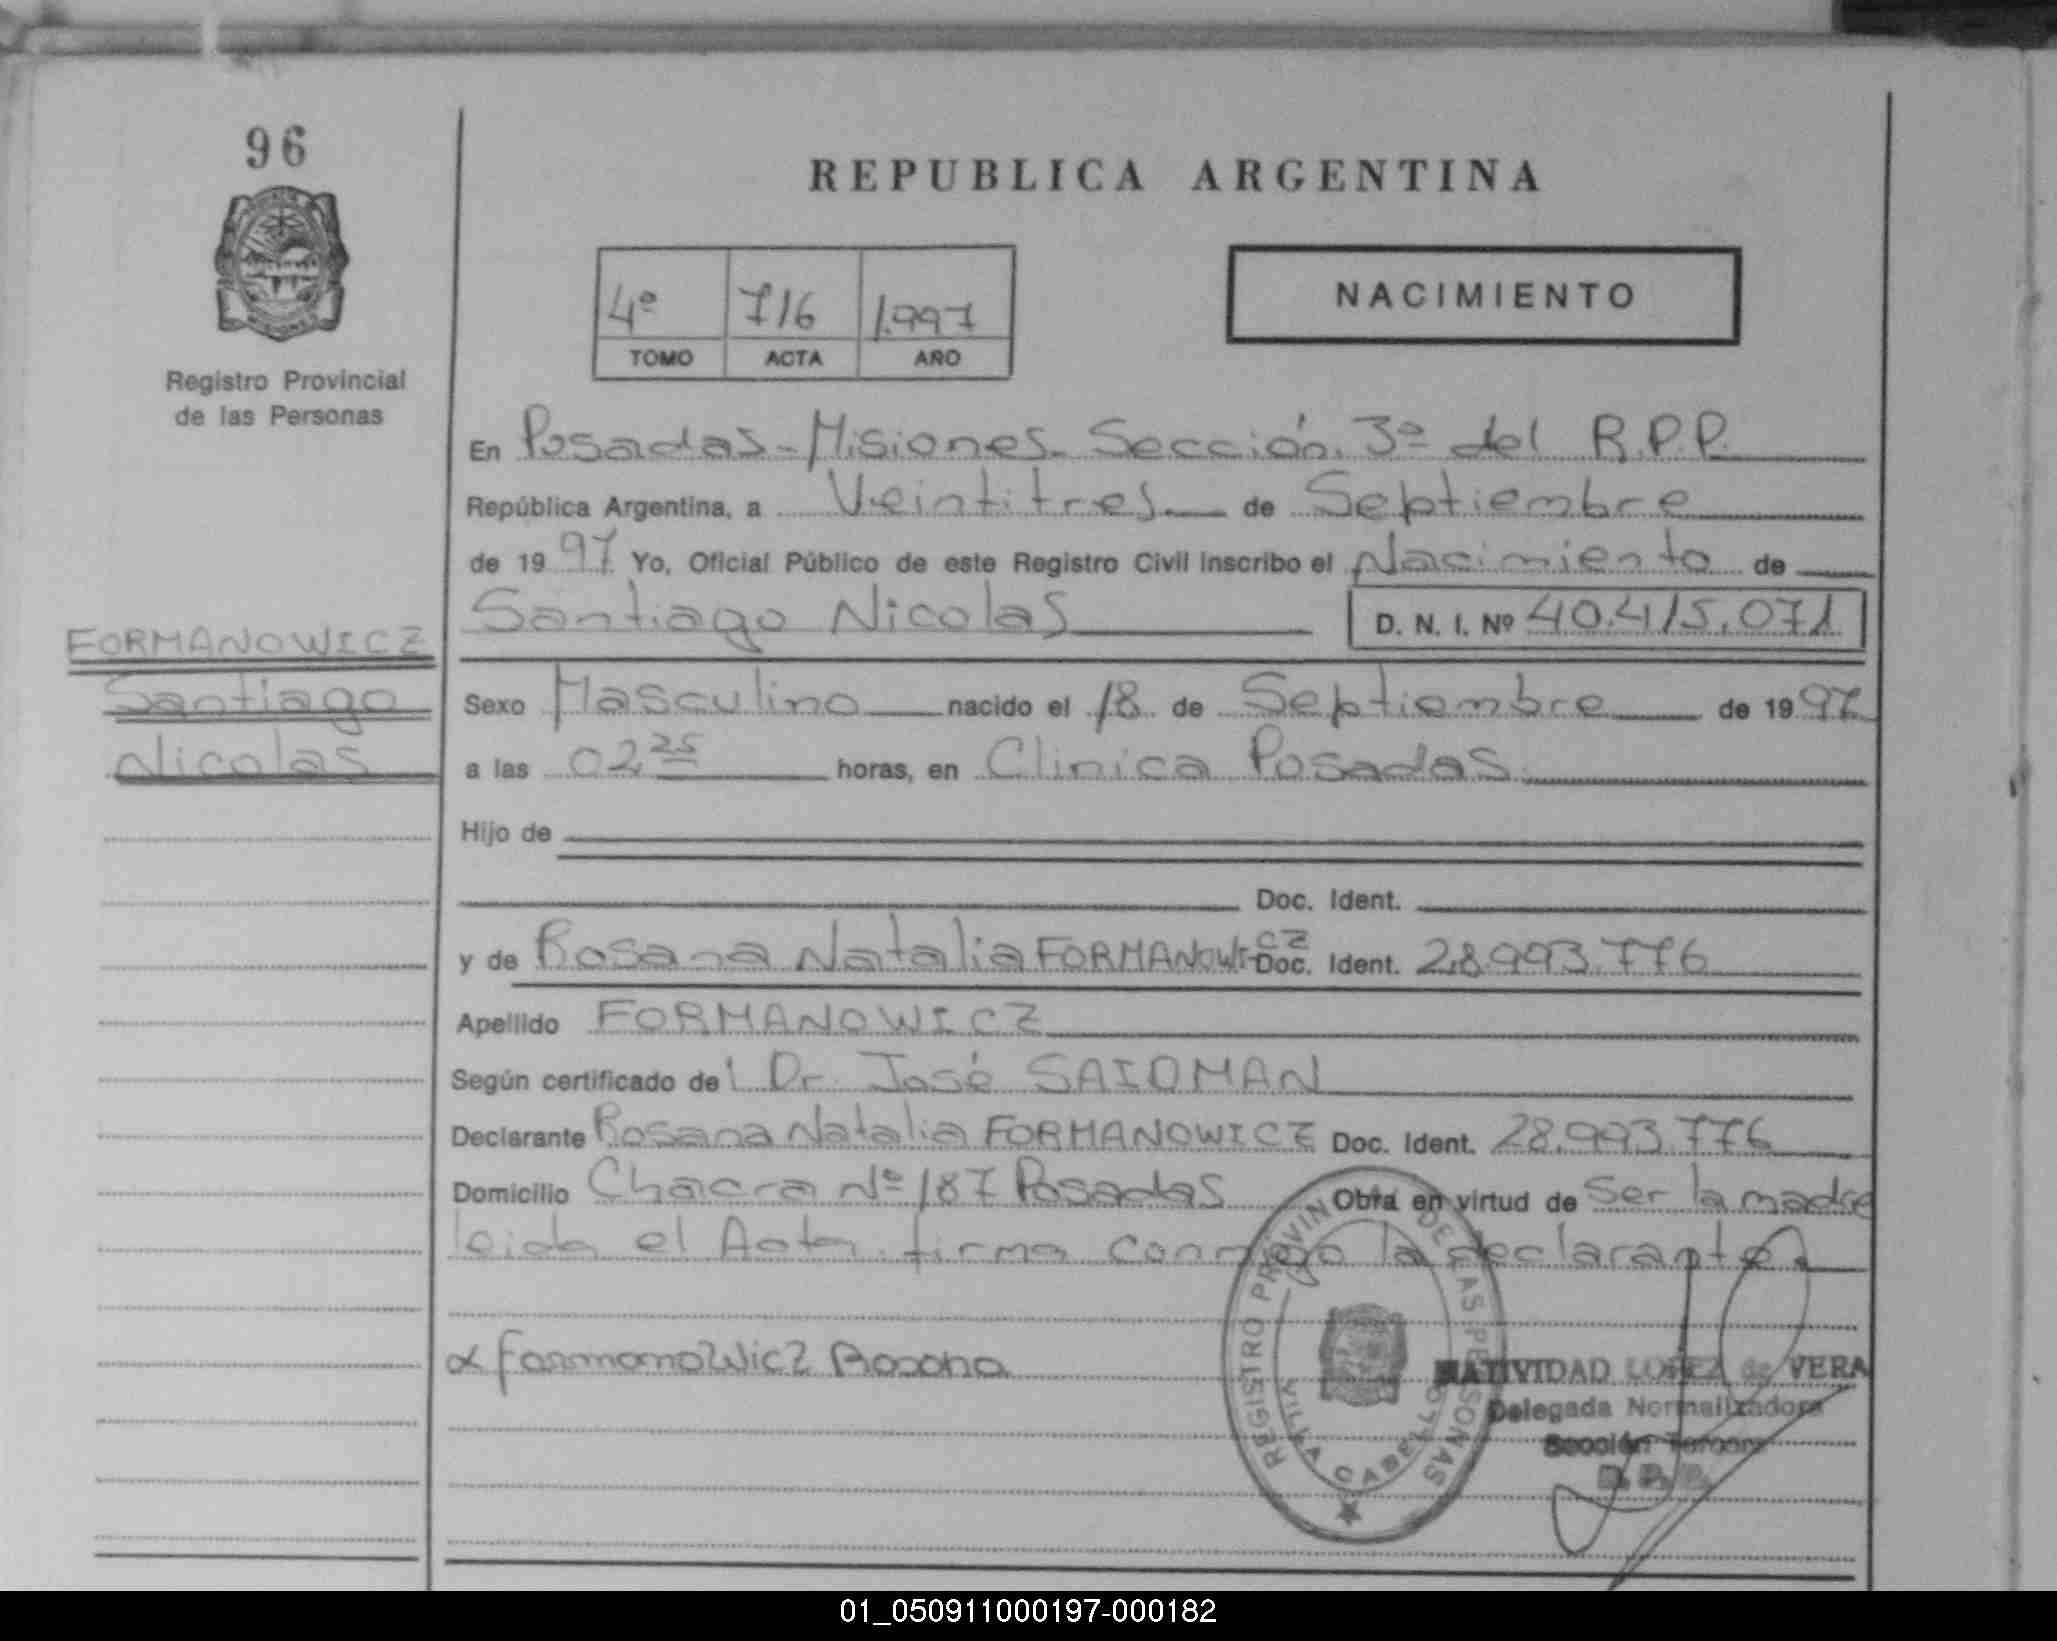 96
REPUBLICA ARGENTINA
4º 716 1.997
TOMO ACTA AÑO
NACIMIENTO
Registro Provincial
de las Personas
En Posadas-Misiones. Sección. 3º del R.P.P.
República Argentina, a Veintitres de Septiembre
de 1997 Yo, Oficial Público de este Registro Civil inscribo el Nacimiento de
Santiago Nicolas D. N. I. Nº 40.415.071
FORMANOWICZ
Santiago
Nicolas
Sexo Masculino nacido el 18 de Septiembre de 1997
a las 02 25 horas, en Clinica Posadas
Hijo de
Doc. Ident.
y de Rosana Natalia FORMANOWICZ Doc. Ident. 28.993.776
Apellido FORMANOWICZ
Según certificado del Dr. José SAIDMAN
Declarante Rosana Natalia FORMANOWICZ Doc. Ident. 28.993.776
Domicilio Chacra Nº 187 Posadas Obra en virtud de Ser la madre
leida el Acta firma conmigo la declarante
Formanowicz Rosana
REGISTRO PROVINCIAL DE LAS PERSONAS
VILLA CABELLO
NATIVIDAD LOPEZ de VERA
Delegada Normalizadora
Sección Tercera
R. P. P.
01_050911000197-000182